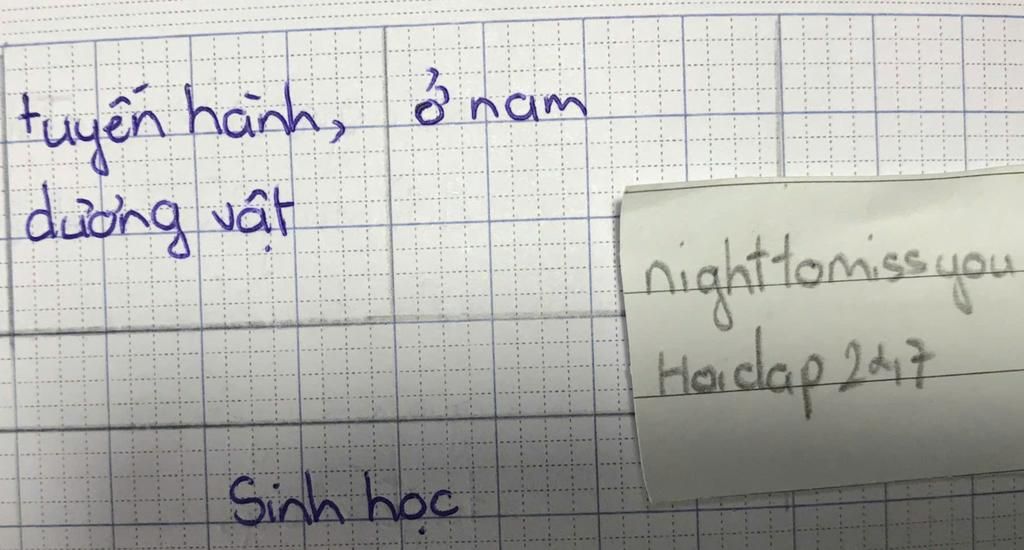 tuyến hành, ở nam
dương vật
nighttomissyou
Hoidap 247
Sinh học